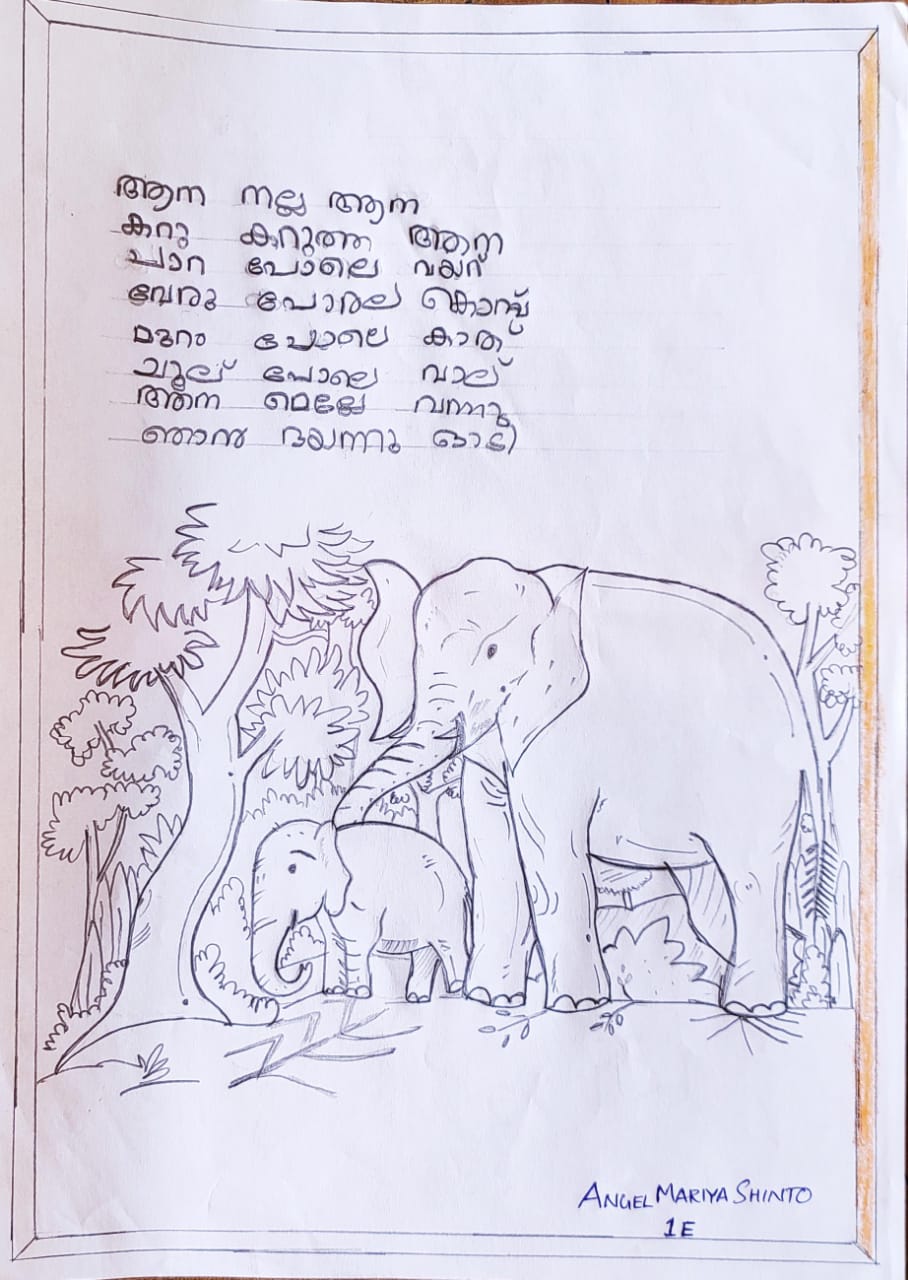 ആന നല്ല ആന
കറു കറുത്ത ആന
പാറ പോലെ വയറ്
വേരു പോലെ കൊമ്പ്
മുറം പോലെ കാത്
ചൂല് പോലെ വാല്
ആന മെല്ലേ വന്നു
ഞാൻ ഭയന്നു ഓടി
ANGEL MARIYA SHINTO
1E